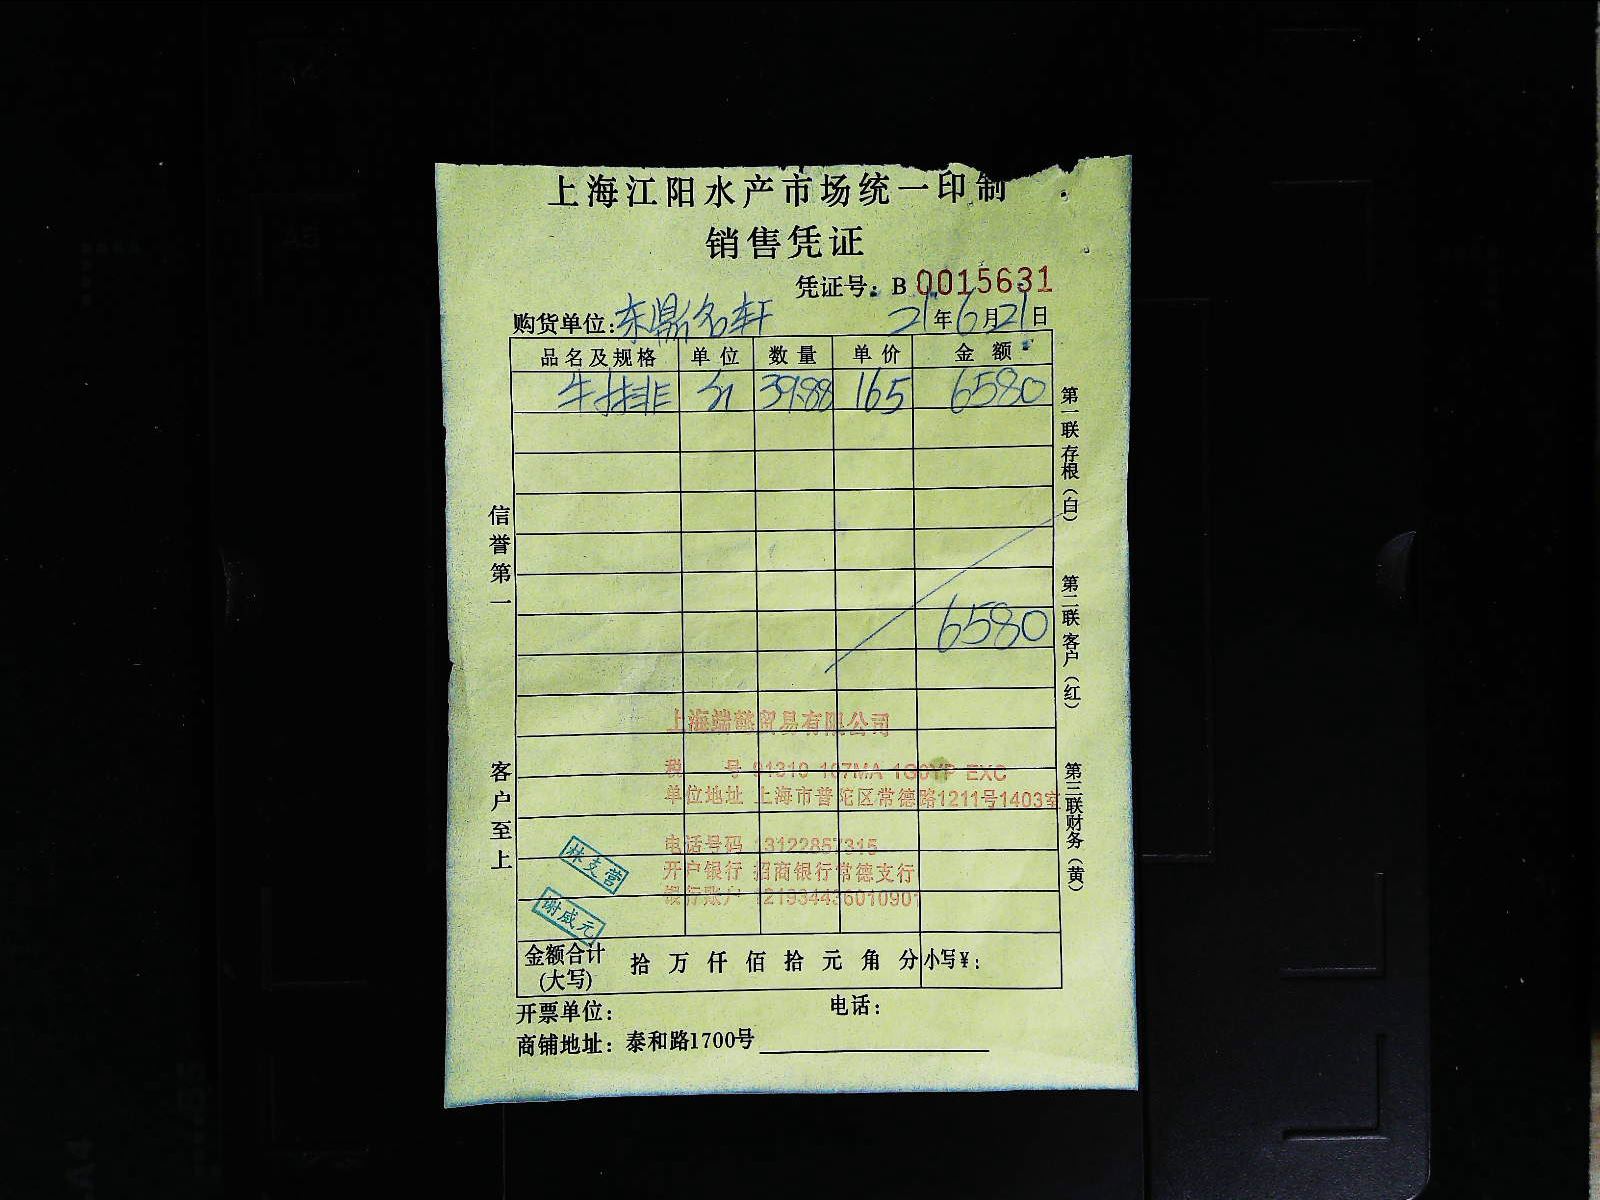 上海江阳水产市场统一印制
销售凭证
凭证号：B 0015631
购货单位：东鼎名轩 21年6月21日
品名及规格 单位 数量 单价 金额
牛排 斤 39.88 165 6580
6580
信誉第一
客户至上
第一联存根（白）
第二联客户（红）
第三联财务（黄）
上海端懿贸易有限公司
税 号 91310 107MA 1G0YP EXC
单位地址 上海市普陀区常德路1211号1403室
电话号码 13122857315
开户银行 招商银行常德支行
银行账户 121934436010901
林支营
谢成元
金额合计 (大写) 拾 万 仟 佰 拾 元 角 分 小写¥：
开票单位： 电话：
商铺地址：泰和路1700号